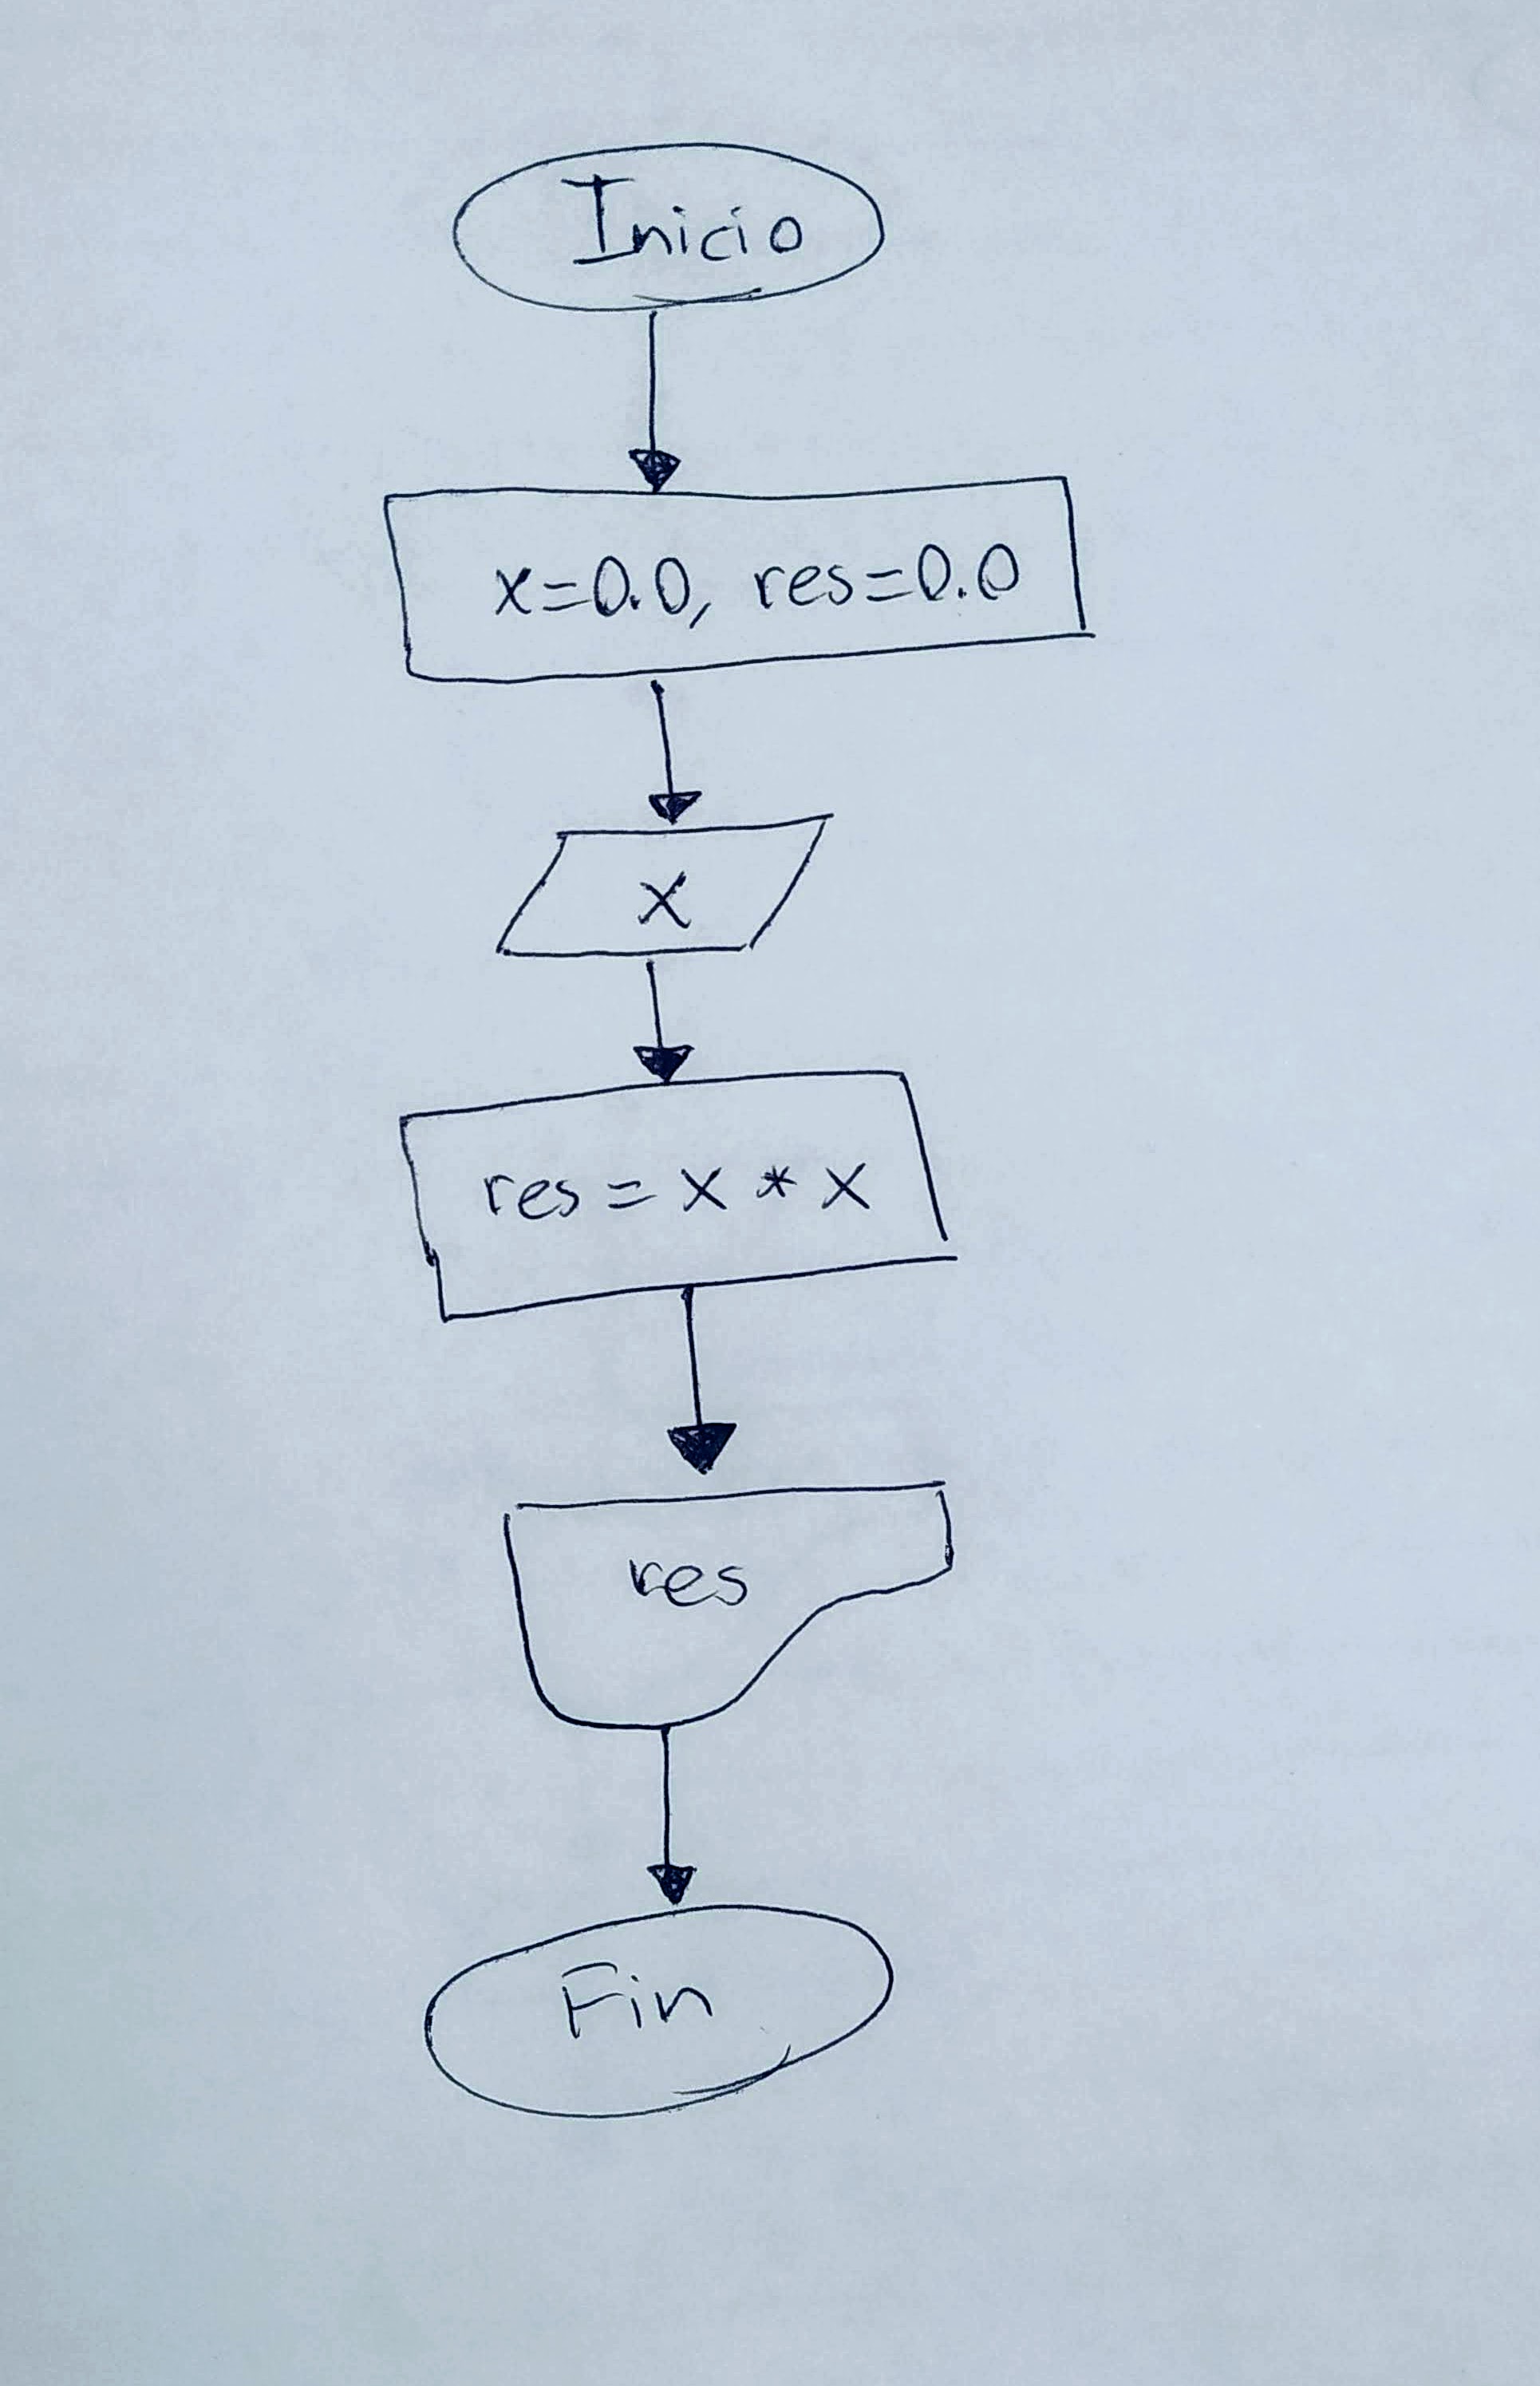 Inicio
x=0.0, res=0.0
x
res = x * x
res
Fin